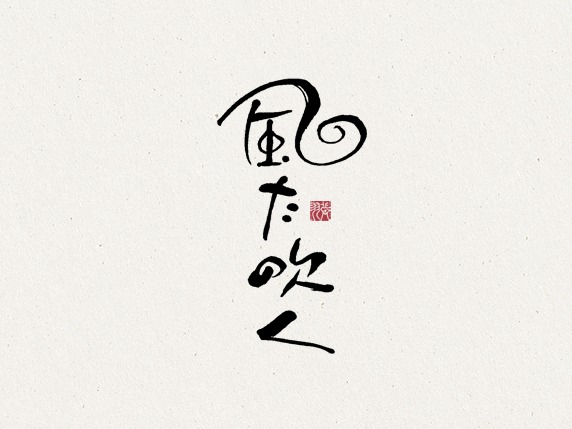 風た吹く